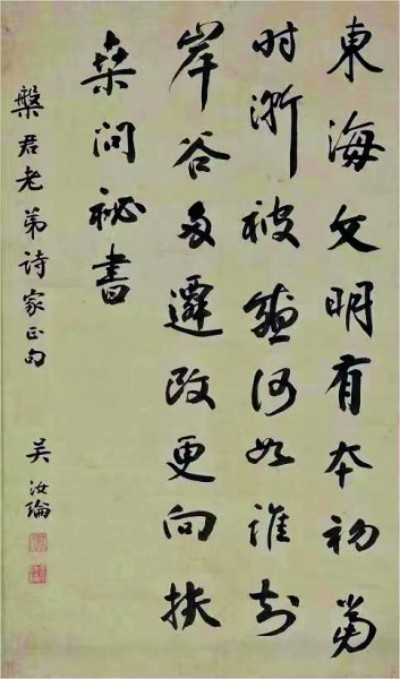 東海文明有本初當
时漸被何如誰知
岸谷多遷改更向扶
桑問祕書
槃君老弟诗家正句
吴汝綸